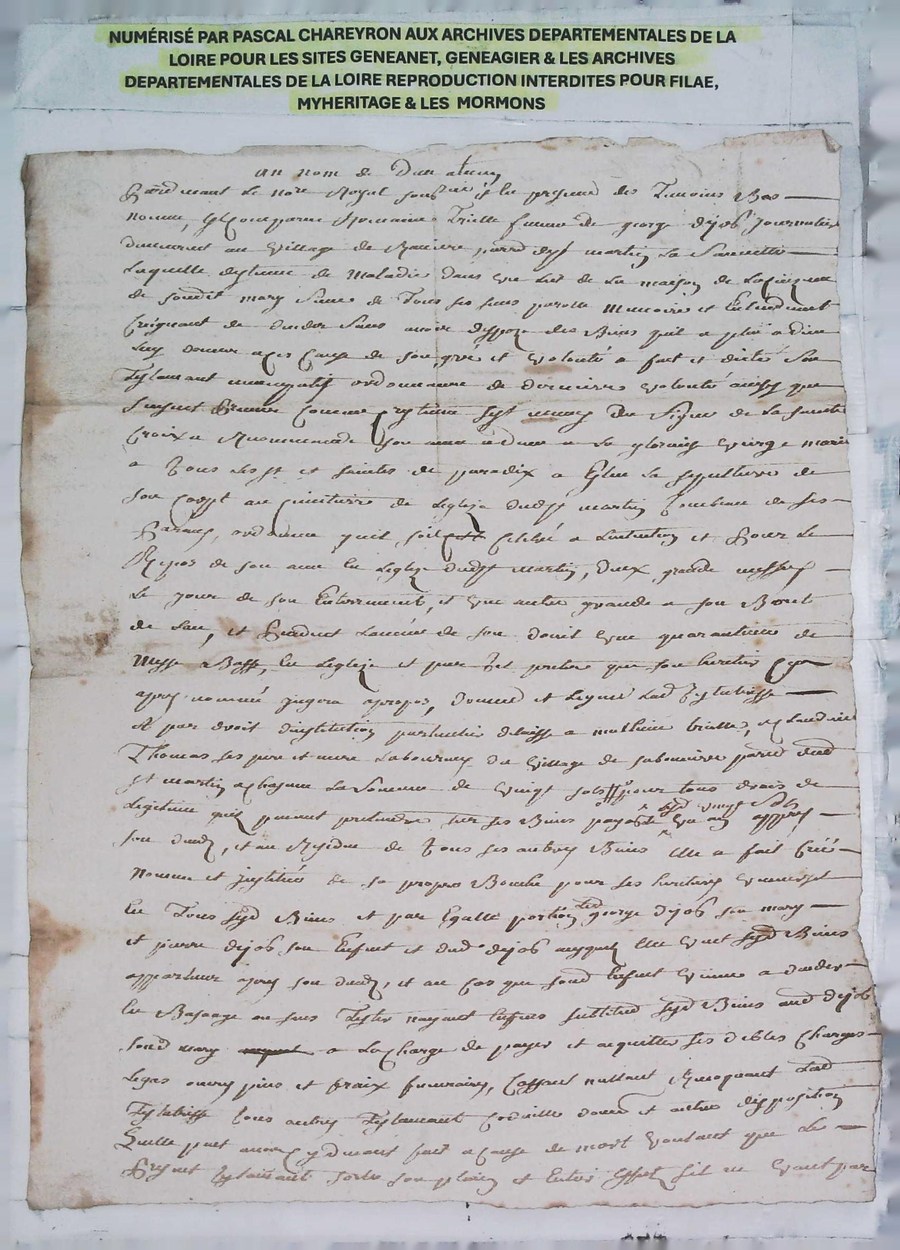 NUMÉRISÉ PAR PASCAL CHAREYRON AUX ARCHIVES DEPARTEMENTALES DE LA
LOIRE POUR LES SITES GENEANET, GENEAGIER & LES ARCHIVES
DEPARTEMENTALES DE LA LOIRE REPRODUCTION INTERDITES POUR FILAE,
MYHERITAGE & LES MORMONS
au nom de Dieu
Pardevant Le nore Royal soubsigné et En presence des Temoins Bas
nommes, Romaine Trielle femme de george dejob Journalier
demeurant au Village de parrd dest martin La Sauvetté
Laquelle detenue de Maladie dans un Lit de La maison de
de soudit mary Saine de Tous ses sens parolle Memoire et Entendement
Creignant de deceder sans avoir disposé des Biens quil a plu a dieu
Luy donner a ces Cause de son gré et volonté a fait et dicté Son
Testament nuncupatif ordonnance de derniere volonté ainsy que
Sensuit Premier Comme Cretienne sest munie Du Signe de La Sainte
Croix a Recommande son ame a dieu a La glorieuse vierge marie
a Tous les sts et saintes de paradix a Elue La sepulture de
son Corps au Cimetiere de Leglize dudst martin Tombeau de ses
Parans, ordonne quil soit Celebré a Lintention et Pour Le
Repos de son ame En Leglize dudst martin, deux grande messes
Le jour de son Enterrement, et une autre grande a son Bout
de Lan, et Pendant Lannée de son deuil une quarantaine de
Messe Basse, En Leglize et par tel pretre que son heritier Cy
apres nommé jugera apropos, donne et Legue Lad Testatrisse
Et par droit dinstitution particuliere delaisse a mathieu trielle, et Claudine
Thomas ses pere et mere Laboureurs du village de parrd dud
st martin a chacune La Somme de vingt sols pour tous drois de
Legitime quils peuvent pretendre sur ses Biens payable Lesd vingt Sols un an apres
son decez, et au Residue de Tous ses autres Biens Elle a fait Créé
Nommé et institué de sa propre Bouche pour ses heritiers universel
En Tous Sesd Biens et par Egalle portion Led george dejob son mary
et pierre dejob son Enfant et dud dejob auxquels Elle veut Sesd Biens
appartenir apres son decez, et au Cas que soud Enfant vienne a deceder
En Basaage ou sans Tester nayant Enfans substitue Sesd Biens aud dejob
soud mary a La Charge de payer et acquitter ses debtes Charges
Legas œuvres pies et fraix funeraires, Cassant nullant Revoquant Lad
Testatrisse tous autres Testament Codicille donné et autre disposition
Quelle peut avoir cydevant fait a Cause de mort voulant que Le
Present testament sorte son plein et Entier Effet sil ne vaut par